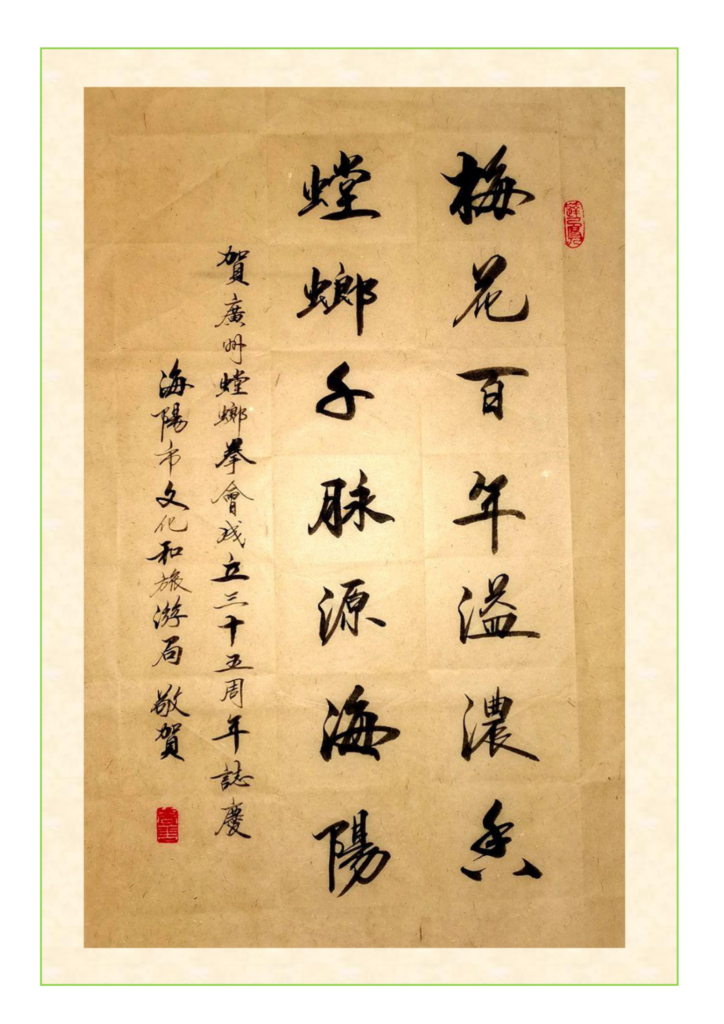 梅花百年溢濃香
螳螂千脉源海陽
賀廣州螳螂拳會成立三十五周年誌慶
海陽市文化和旅游局 敬賀